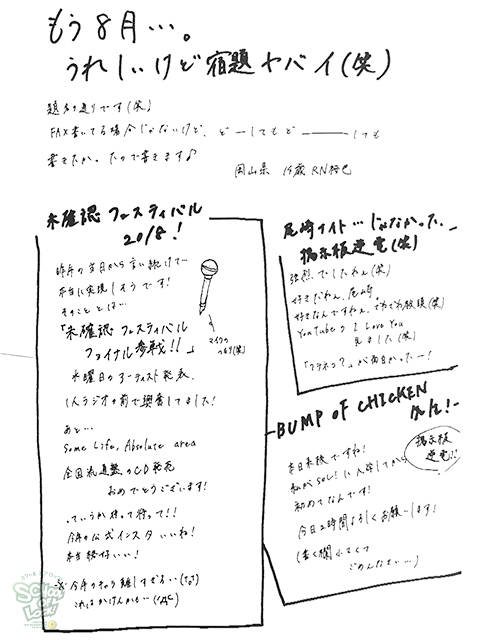 もう8月…。
うれしいけど宿題ヤバイ(笑)
題名の通りです(笑)
FAX書いてる場合じゃないけど、どーしてもど———しても
書きたかったので書きます♪
岡山県 14歳 RN
未確認フェスティバル
2018!
昨年の8月から言い続けて…
本当に実現しそうです!
そのこととは…
「未確認フェスティバル
ファイナル参戦!!」
マイクの
つもり(笑)
木曜日のアーティスト発表、
1人ラジオの前で興奮してました!
あと…
Some Life, Absolute area
全国流通盤のCD発売
おめでとうございます!
っていうか待って待って!!
今年の公式インスタいいね!
本当格好いい!
※今年の
これは
尾崎ナイト…じゃなかった、
掲示板逆電(笑)
強烈でしたねぇ(笑)
好きだねぇ、尾崎。
好きなんですねぇ、ざわざわ放課(笑)
YouTubeの I Love You
見ました(笑)
が面白かったー!
BUMP OF CHICKEN
掲示板
逆電!!
本日来校ですね!
私がSOL!に入学してから
初めてなんです!
今日2時間よろしくお願いします!
(書く欄小さくて
ごめんなさい…)
School of Lock!